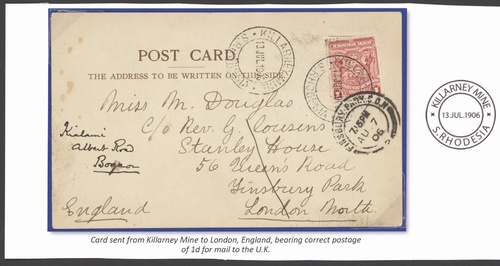 POST CARD.
THE ADDRESS TO BE WRITTEN ON THIS SIDE
KILLARNEY
13 JUL 190
FINSBURY PARK B.O. N.
7.15PM
AU 7
06
Miss M. Douglas
c/o Rev. G. Cousens
Stanley House
56 Queen's Road
Finsbury Park
London North.
England
Albert Road
Bognor
KILLARNEY MINE
13.JUL.1906
S.RHODESIA
Card sent from Killarney Mine to London, England, bearing correct postage
of 1d for mail to the U.K.